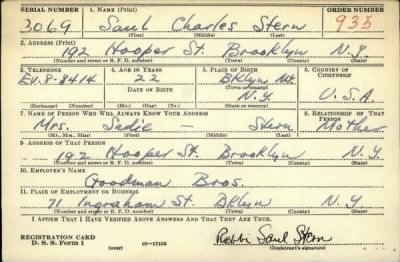 SERIAL NUMBER 1. NAME (Print) ORDER NUMBER
3069 Saul Charles Stern 935
(First) (Middle) (Last)
2. ADDRESS (Print)
192 Hooper St. Brooklyn N.Y.
(Number and street or R. F. D. number) (Town) (County) (State)
3. TELEPHONE 4. AGE IN YEARS 5. PLACE OF BIRTH 6. COUNTRY OF CITIZENSHIP
Ev. 8-8414 22 BKlyn
DATE OF BIRTH (Town or county)
N.Y. U.S.A.
(Exchange) (Number) (Mo.) (Day) (Yr.) (State or country)
7. NAME OF PERSON WHO WILL ALWAYS KNOW YOUR ADDRESS 8. RELATIONSHIP OF THAT PERSON
Mrs. Sadie — Stern Mother
(Mr., Mrs., Miss) (First) (Middle) (Last)
9. ADDRESS OF THAT PERSON
192 Hooper St. Brooklyn N.Y.
(Number and street or R. F. D. number) (Town) (County) (State)
10. EMPLOYER'S NAME
Goodman Bros.
11. PLACE OF EMPLOYMENT OR BUSINESS
71 Ingraham St. Bklyn N.Y.
(Number and street or R. F. D. number) (Town) (County) (State)
I AFFIRM THAT I HAVE VERIFIED ABOVE ANSWERS AND THAT THEY ARE TRUE.
REGISTRATION CARD
D. S. S. Form 1 (over) 16—17105 Rabbi Saul Stern
(Registrant's signature)